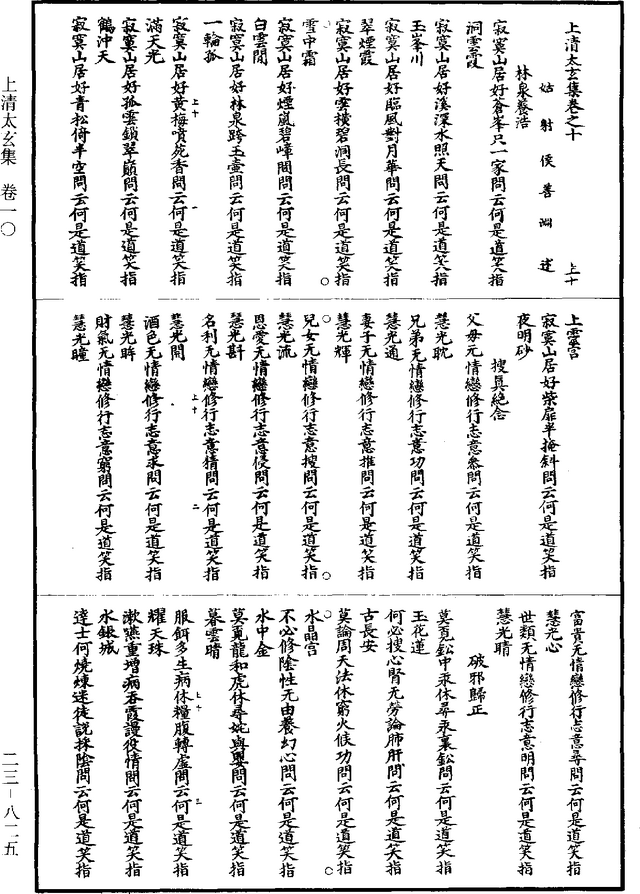 上清太玄集卷之十 上十
姑射侯善淵述
林泉養浩
寂寞山居好蒼峯只一家問云何是道笑指
洞雲霞
寂寞山居好溪深水照天問云何是道笑指
玉峯川
寂寞山居好臨風對月華問云何是道笑指
翠煙霞
寂寞山居好雲橫碧洞長問云何是道笑指
雪中霜
寂寞山居好煙嵐碧嶂間問云何是道笑指
白雲閒
寂寞山居好林泉跨玉壺問云何是道笑指
一輪孤
寂寞山居好黃梅噴苑香問云何是道笑指
滿天光
寂寞山居好孤雲鎖翠巔問云何是道笑指
鶴沖天
寂寞山居好青松倚半空問云何是道笑指
上清太玄集 卷一〇
上霊宮
寂寞山居好柴扉半掩斜問云何是道笑指
夜明砂
搜真絕念
父母无情戀修行志意叅問云何是道笑指
慧光耽
兄弟无情戀修行志意功問云何是道笑指
慧光通
妻子无情戀修行志意推問云何是道笑指
慧光輝
兒女无情戀修行志意搜問云何是道笑指
慧光流
恩愛无情戀修行志意侵問云何是道笑指
慧光斟
名利无情戀修行志意猜問云何是道笑指
慧光開
上十 二
酒色无情戀修行志意求問云何是道笑指
慧光眸
財氣无情戀修行志意窮問云何是道笑指
慧光瞳
富貴无情戀修行志意尋問云何是道笑指
慧光心
世類无情戀修行志意明問云何是道笑指
慧光睛
破邪歸正
莫覓鈆中汞休尋汞裏鈆問云何是道笑指
玉花蓮
何必搜心腎无勞論肺肝問云何是道笑指
古長安
莫論周天法休窮火候功問云何是道笑指
水晶宮
不必修陰性无由養幻心問云何是道笑指
水中金
莫覓龍和虎休尋姹與嬰問云何是道笑指
暮雲晴
服餌多生病休糧腹轉虛問云何是道笑指
耀天珠
漱嚥重增病吞霞謾役情問云何是道笑指
水銀城
達士何燒煉迷徒説採陰問云何是道笑指
二三－八二五